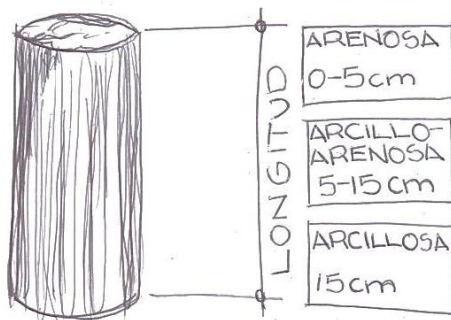 LONGITUD
ARENOSA
0-5cm
ARCILLO-
ARENOSA
5-15cm
ARCILLOSA
15cm